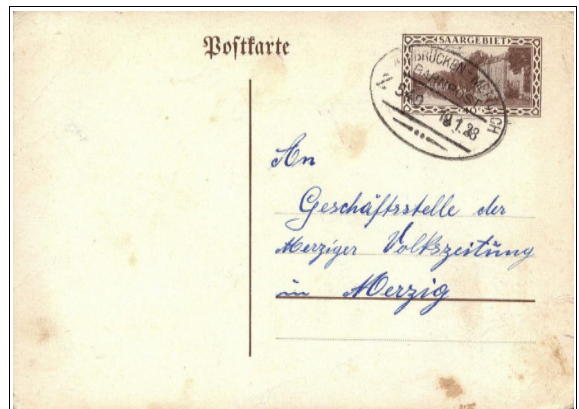 Postkarte
SAARGEBIET
BRÜCKEN-
BAHNPOST
Z. 
19.1.28
An
Geschäftsstelle der
Merziger Volkszeitung
in Merzig